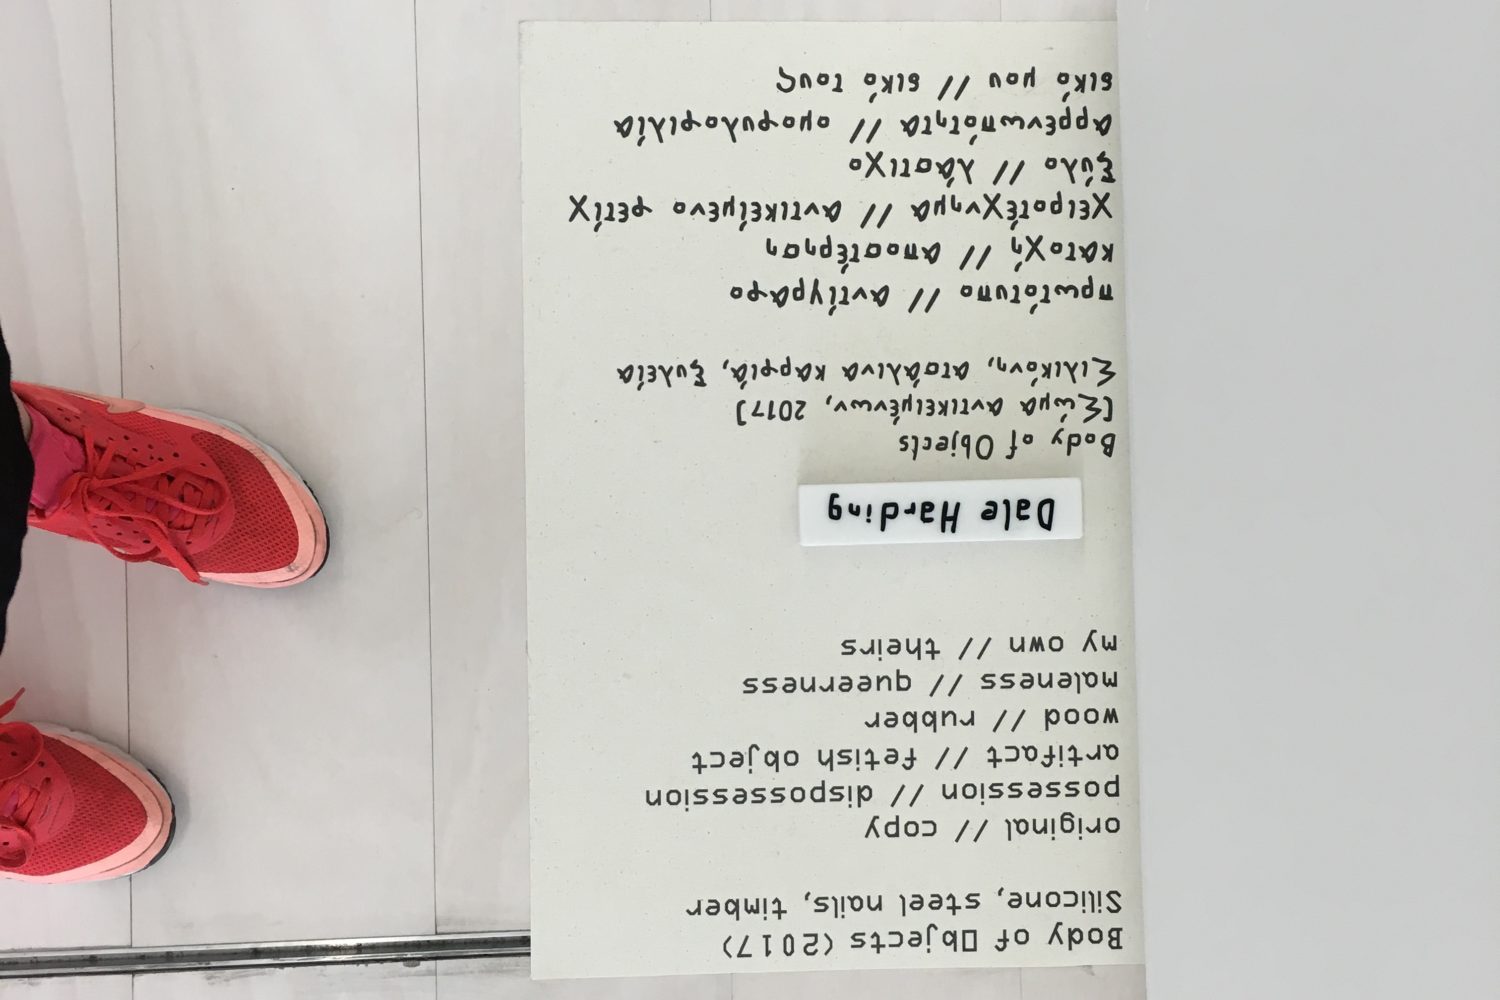 Body of Objects (2017)
Silicone, steel nails, timber
original // copy
possession // dispossession
artifact // fetish object
wood // rubber
maleness // queerness
my own // theirs
Dale Harding
Body of Objects
[Σώμα αντικειμένων, 2017]
Σιλικόνη, ατσάλινα καρφιά, ξυλεία
πρωτότυπο // αντίγραφο
κατοχή // αποστέρηση
χειροτέχνημα // αντικείμενο φετίχ
ξύλο // λάστιχο
αρρενωπότητα // ομοφυλοφιλία
δικό μου // δικό τους